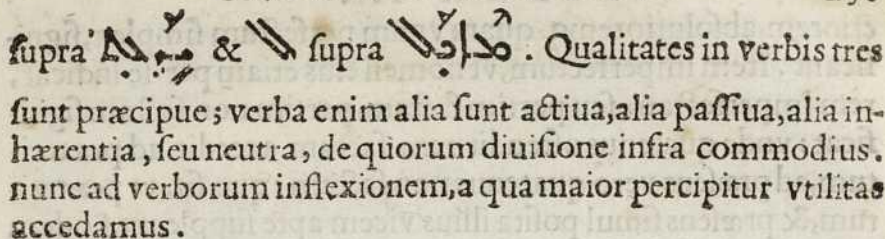 supra & supra . Qualitates in verbis tres
sunt præcipue; verba enim alia sunt actiua, alia passiua, alia in-
hærentia, seu neutra, de quorum diuisione infra commodius.
nunc ad verborum inflexionem, a qua maior percipitur vtilitas
accedamus.